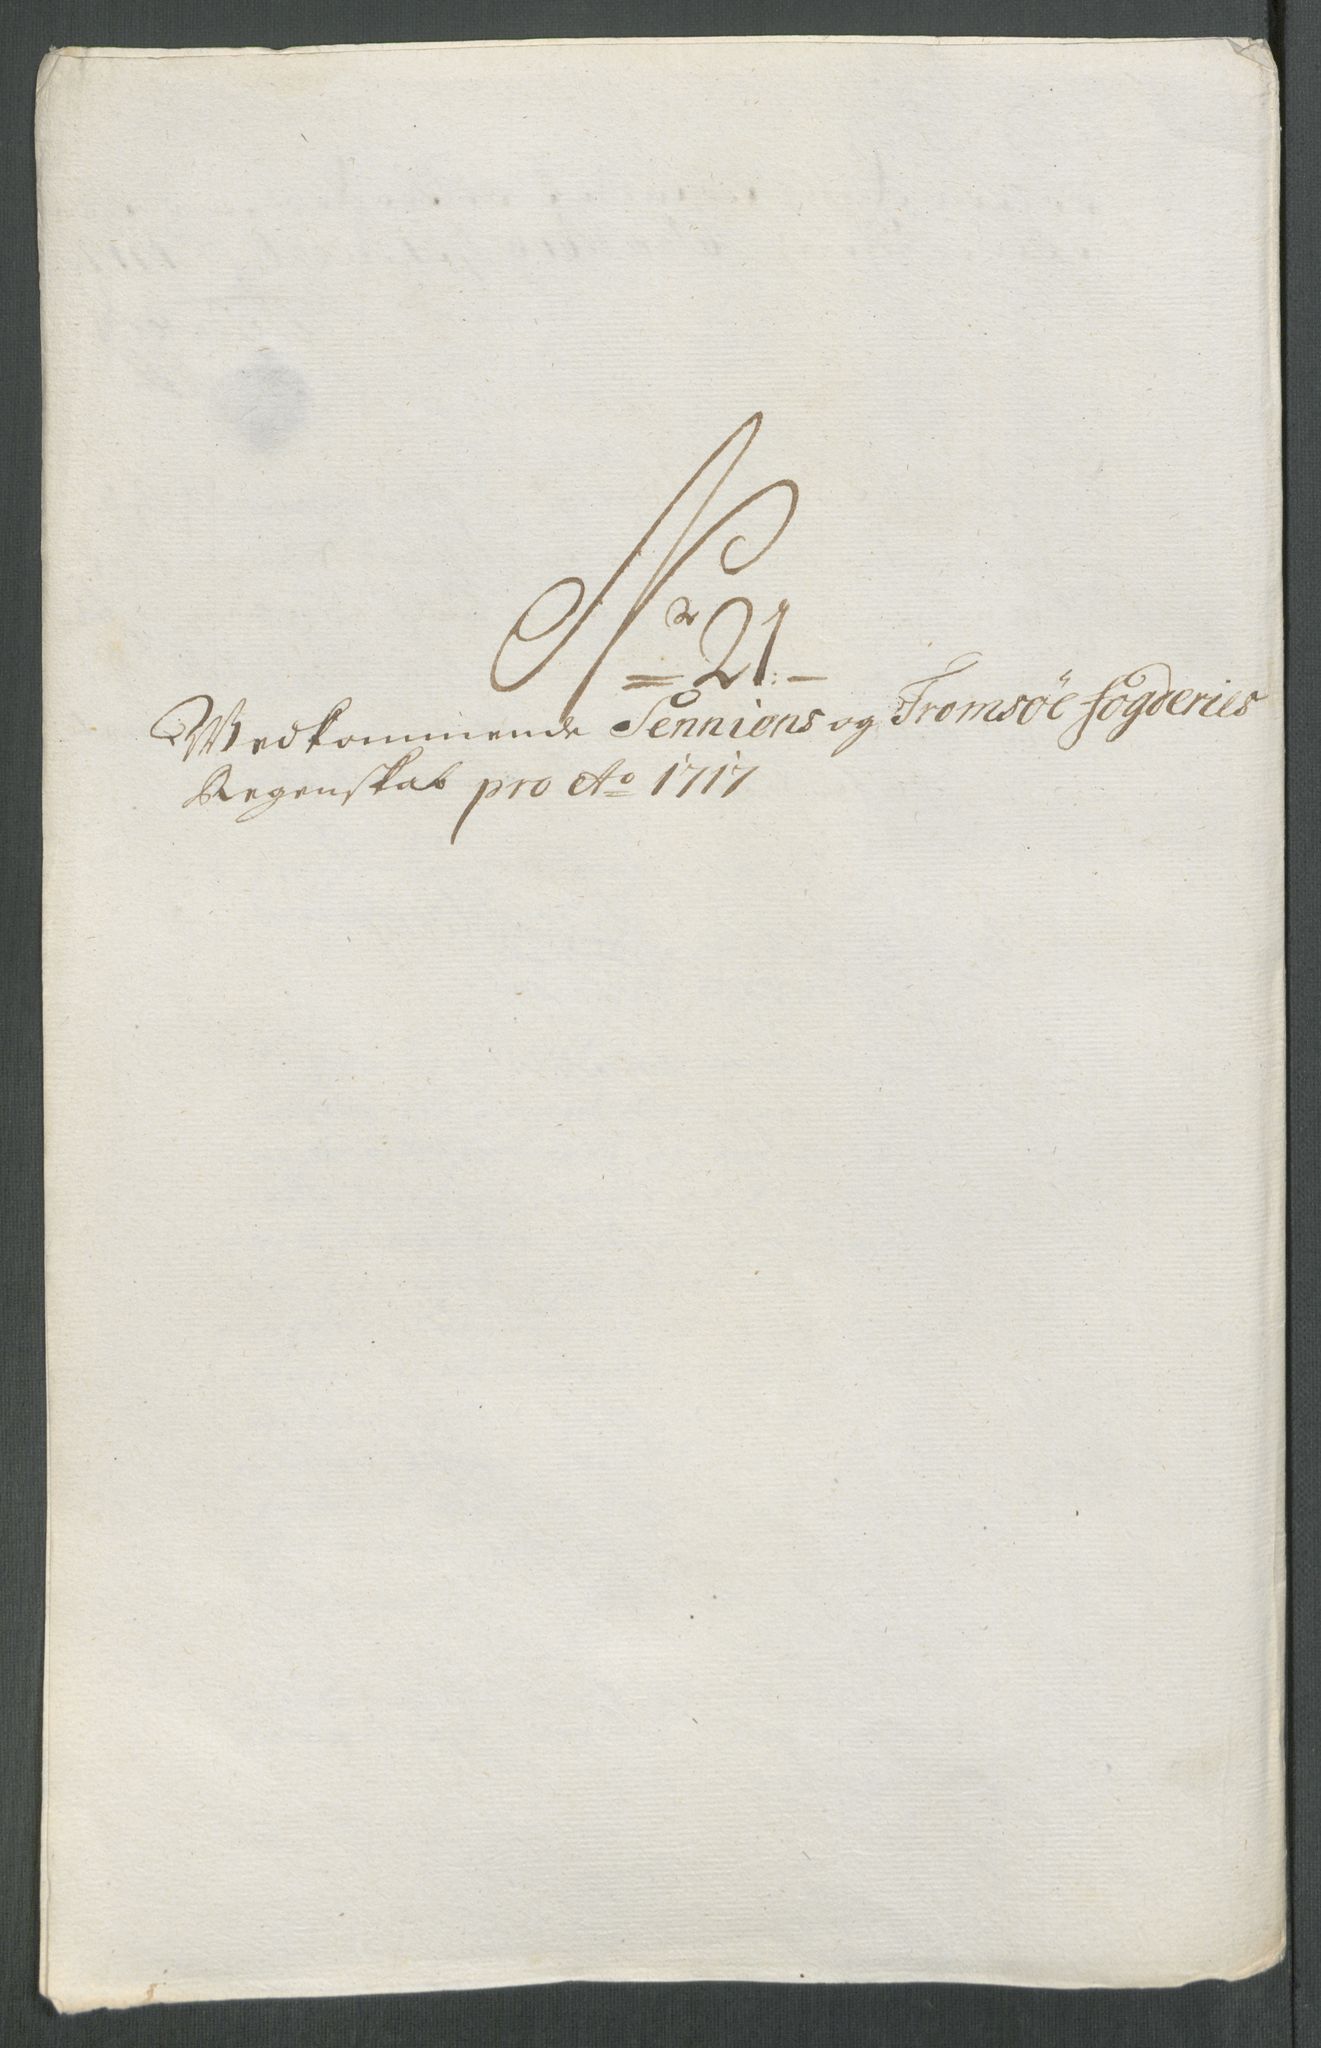 No 21
Wedkommende Senniens og Tromsøe fogderies
Regenskab pro Ao 1717